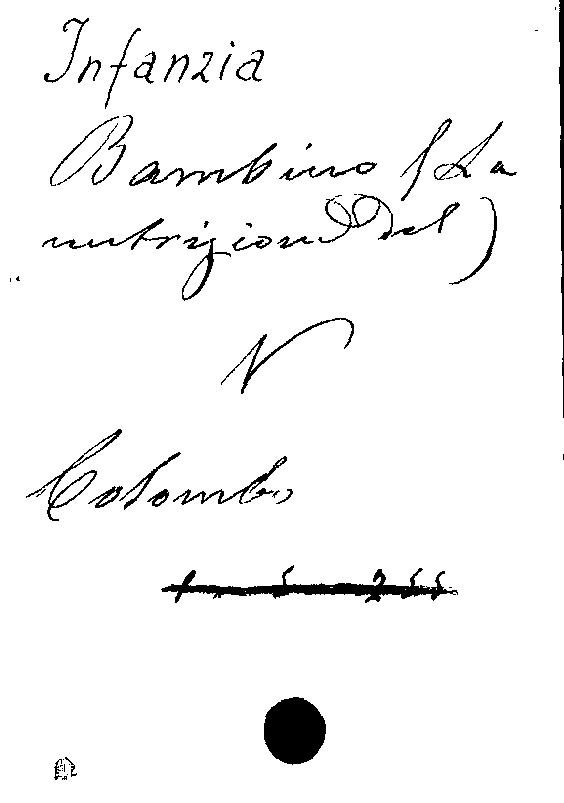 Infanzia
Bambino (La
nutrizione del)
V
Colombo